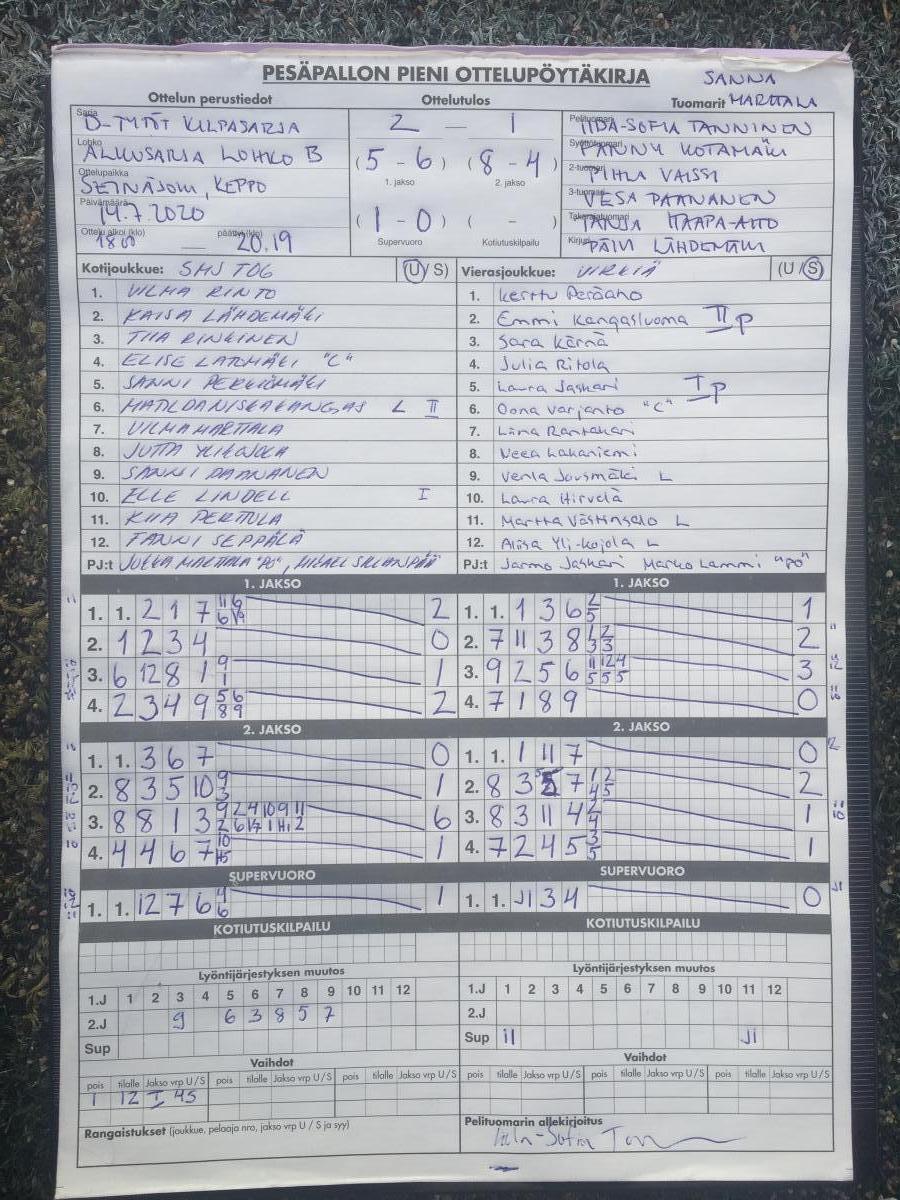 PESÄPALLON PIENI OTTELUPÖYTÄKIRJA
SANNA
Ottelun perustiedot
Ottelutulos
Tuomarit MARTTALA
Sarja
D-TYTÖT KILPASARJA
2 — 1
Pelituomari
IIDA-SOFIA TANNINEN
Lohko
ALKUSARJA LOHKO B
(5 - 6) (8 - 4)
1. jakso 2. jakso
Syöttötuomari
FANNY KOTAMÄKI
Ottelupaikka
SEINÄJOKI, KEPPO
2-tuomari
PIHLA VAISSI
Päivämäärä
14.7.2020
(1 - 0) ( - )
Supervuoro Kotiutuskilpailu
3-tuomari
VESA PAANANEN
Takarajatuomari
TANJA HAAPA-AHO
Ottelu alkoi (klo) 18 00 — päättyi (klo) 20.19
Kirjuri
PÄIVI LÄHDEMÄKI
Kotijoukkue: SMJ T06 (U/S)
Vierasjoukkue: VIRKIÄ (U/S)
1. VILMA RINTO
1. Kerttu Peräaho
2. KAISA LÄHDEMÄKI
2. Emmi Kangasluoma II p
3. TIIA RINKINEN
3. Sara Kärnä
4. ELISE LATOMÄKI "C"
4. Julia Ritola
5. SANNI PERKIÖMÄKI
5. Laura Jaskari I p
6. MATILDA NISKAKANGAS L II
6. Oona Varjanto "C"
7. VILMA MARTTALA
7. Liina Rantakari
8. JUTTA YLIKOJOLA
8. Neea Lakaniemi
9. SANNI PAANANEN
9. Venla Jousmäki L
10. ELLE LINDELL I
10. Laura Hirvelä
11. KIIA PERTTULA
11. Martta Västinsalo L
12. FANNI SEPPÄLÄ
12. Aliisa Yli-Kojola L
PJ:t JUKKA MARTTALA "PO",
PJ:t Jarmo Jaskari Marko Lammi "PO"
1. JAKSO
1. JAKSO
1. 1. 2 1 7 2
1. 1. 1 3 6 2 5 1
2. 1 2 3 4 0
2. 7 11 3 8 2
3. 6 12 8 1 9 1 1
3. 9 2 5 6 3
4. 2 3 4 9 5 6 8 9 2
4. 7 1 8 9 0
2. JAKSO
2. JAKSO
1. 1. 3 6 7 0
1. 1. 1 11 7 0
2. 8 3 5 10 9 3 1
2. 8 3 5 7 1 2 4 5 2
3. 8 8 1 3 6
3. 8 3 11 4 1
4. 4 4 6 7 1
4. 7 2 4 5 3 5 1
SUPERVUORO
SUPERVUORO
1. 1. 12 7 6 1
1. 1. J1 3 4 0
KOTIUTUSKILPAILU
KOTIUTUSKILPAILU
Lyöntijärjestyksen muutos
Lyöntijärjestyksen muutos
1.J 1 2 3 4 5 6 7 8 9 10 11 12
1.J 1 2 3 4 5 6 7 8 9 10 11 12
2.J 9 6 3 8 5 7
2.J
Sup
Sup 11 J1
Vaihdot
Vaihdot
pois tilalle Jakso vrp U/S pois tilalle Jakso vrp U/S pois tilalle Jakso vrp U/S
pois tilalle Jakso vrp U/S pois tilalle Jakso vrp U/S pois tilalle Jakso vrp U/S
1 12 I 4S
Rangaistukset (joukkue, pelaaja nro, jakso vrp U / S ja syy)
Pelituomarin allekirjoitus